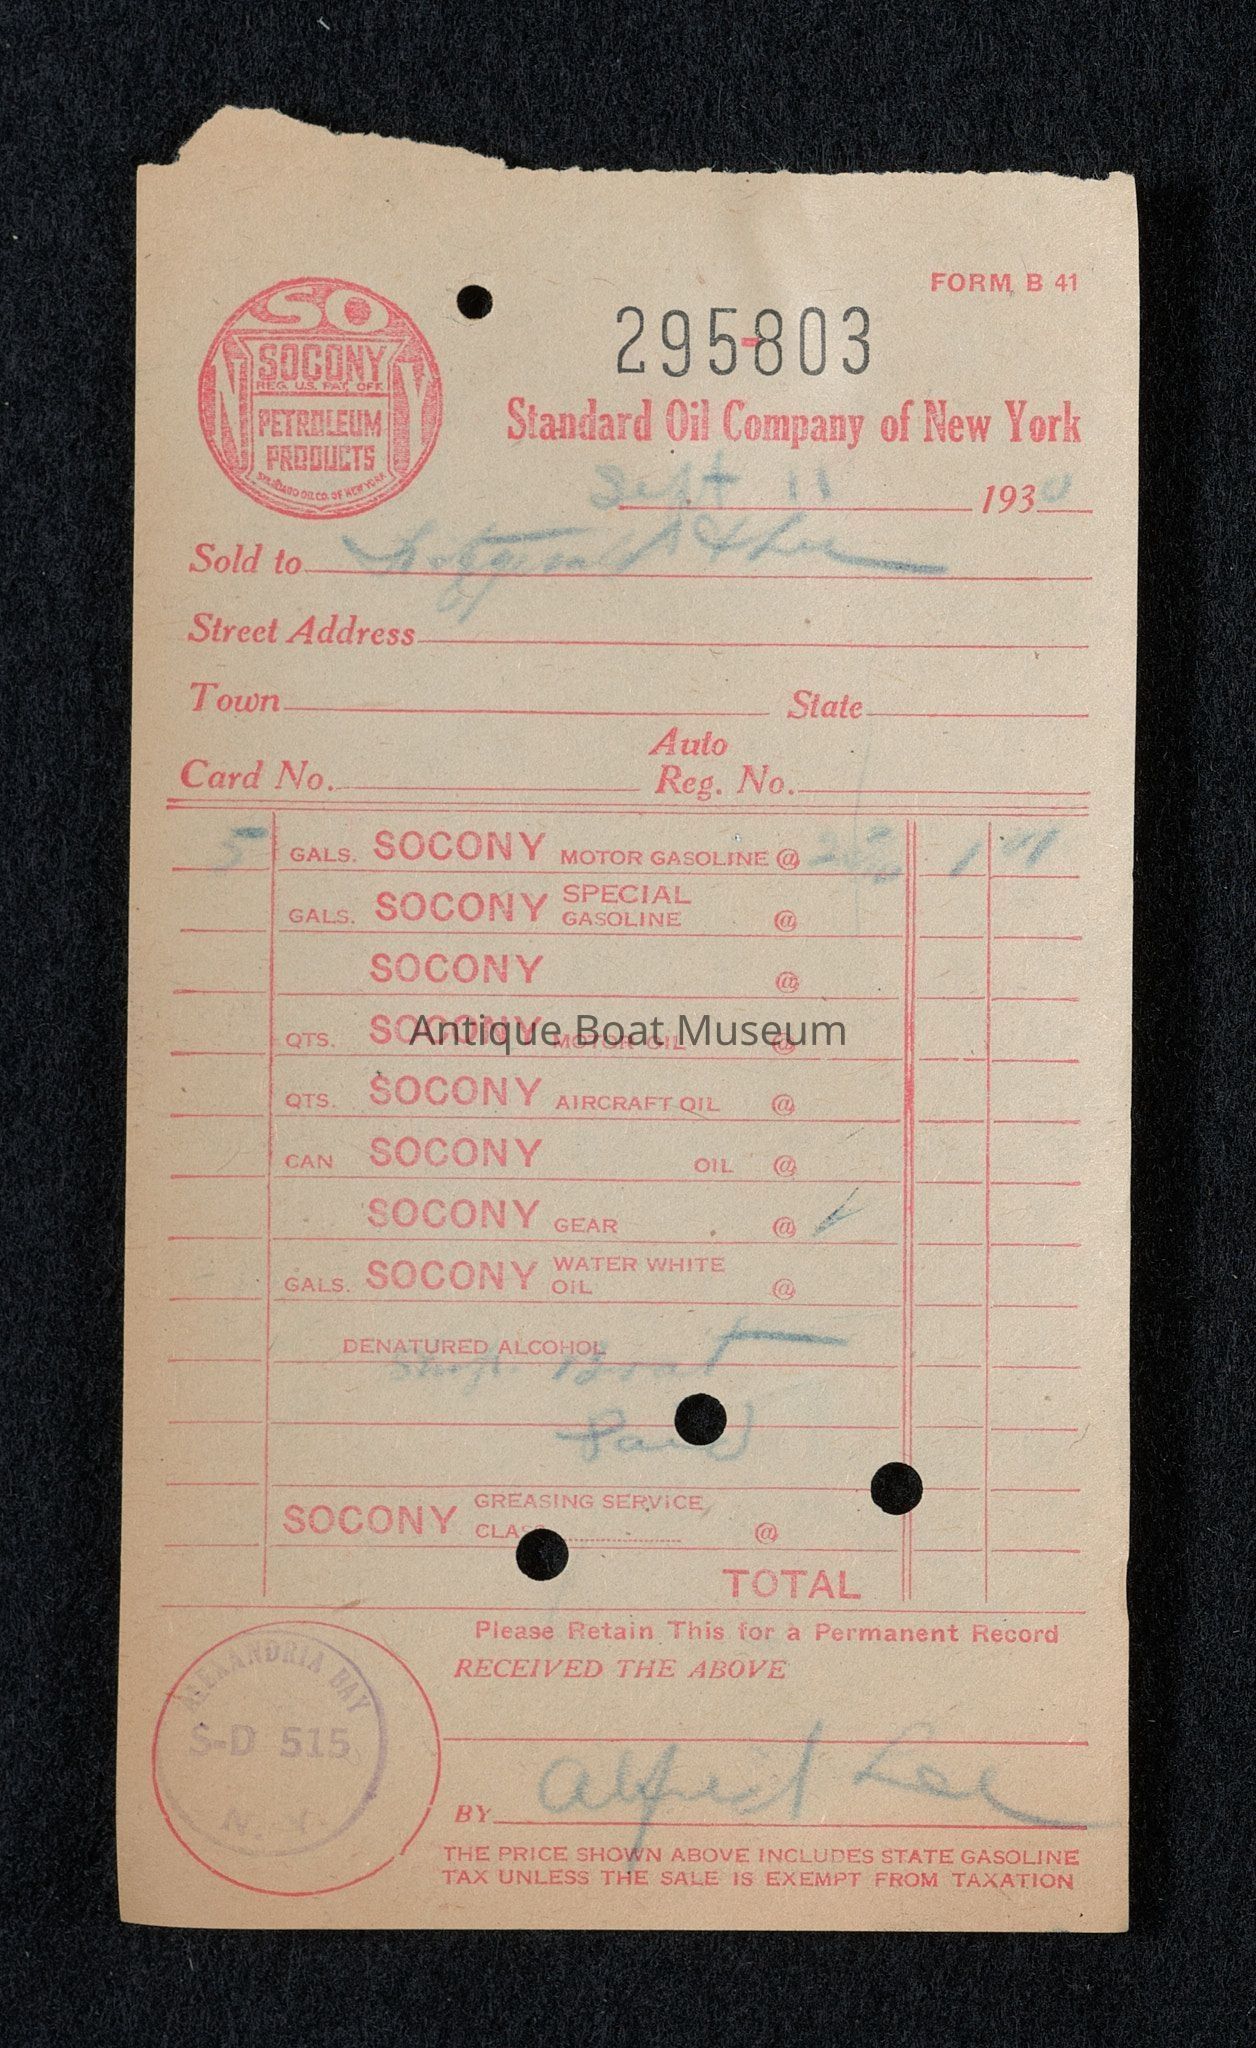 FORM B 41
SO
SOCONY
REG. U.S. PAT. OFF.
PETROLEUM
PRODUCTS
STANDARD OIL CO. OF NEW YORK
295-803
Standard Oil Company of New York
Sept 11 1930
Sold to Fitzgerald & Lee
Street Address
Town State
Card No. Auto Reg. No.
5 GALS. SOCONY MOTOR GASOLINE @
GALS. SOCONY SPECIAL GASOLINE @
SOCONY @
QTS. SOCONY MOTOR OIL @
Antique Boat Museum
QTS. SOCONY AIRCRAFT OIL @
CAN SOCONY OIL @
SOCONY GEAR @
GALS. SOCONY WATER WHITE OIL @
DENATURED ALCOHOL
Boat
Paid
SOCONY GREASING SERVICE
CLASS @
TOTAL
Please Retain This for a Permanent Record
RECEIVED THE ABOVE
ALEXANDRIA BAY
S-D 515
N. Y.
BY Alfred Lee
THE PRICE SHOWN ABOVE INCLUDES STATE GASOLINE
TAX UNLESS THE SALE IS EXEMPT FROM TAXATION